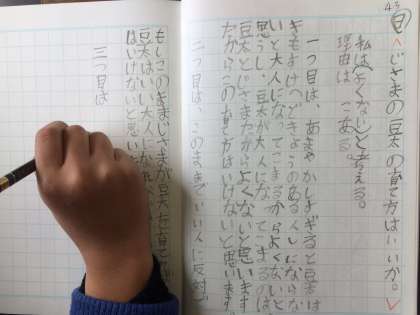 43
見 じさまの豆太の育て方はいいか。
私は(よくない)と考える。
理由は二ある。
一つ目は、あまやかしすぎると豆太は
きもよけへできょうのある人にならな
いと大人になってこまるからよくないと
思うし、豆太が大人になってこまるのは
豆太とじさまだからよくないと思います
だからこの育て方はいけないと思います。
二つ目は、このままでいい人に反対
もしこのままじさまが豆太を育て
豆太はいい大人になれ
はいけないと思い
三つ目は